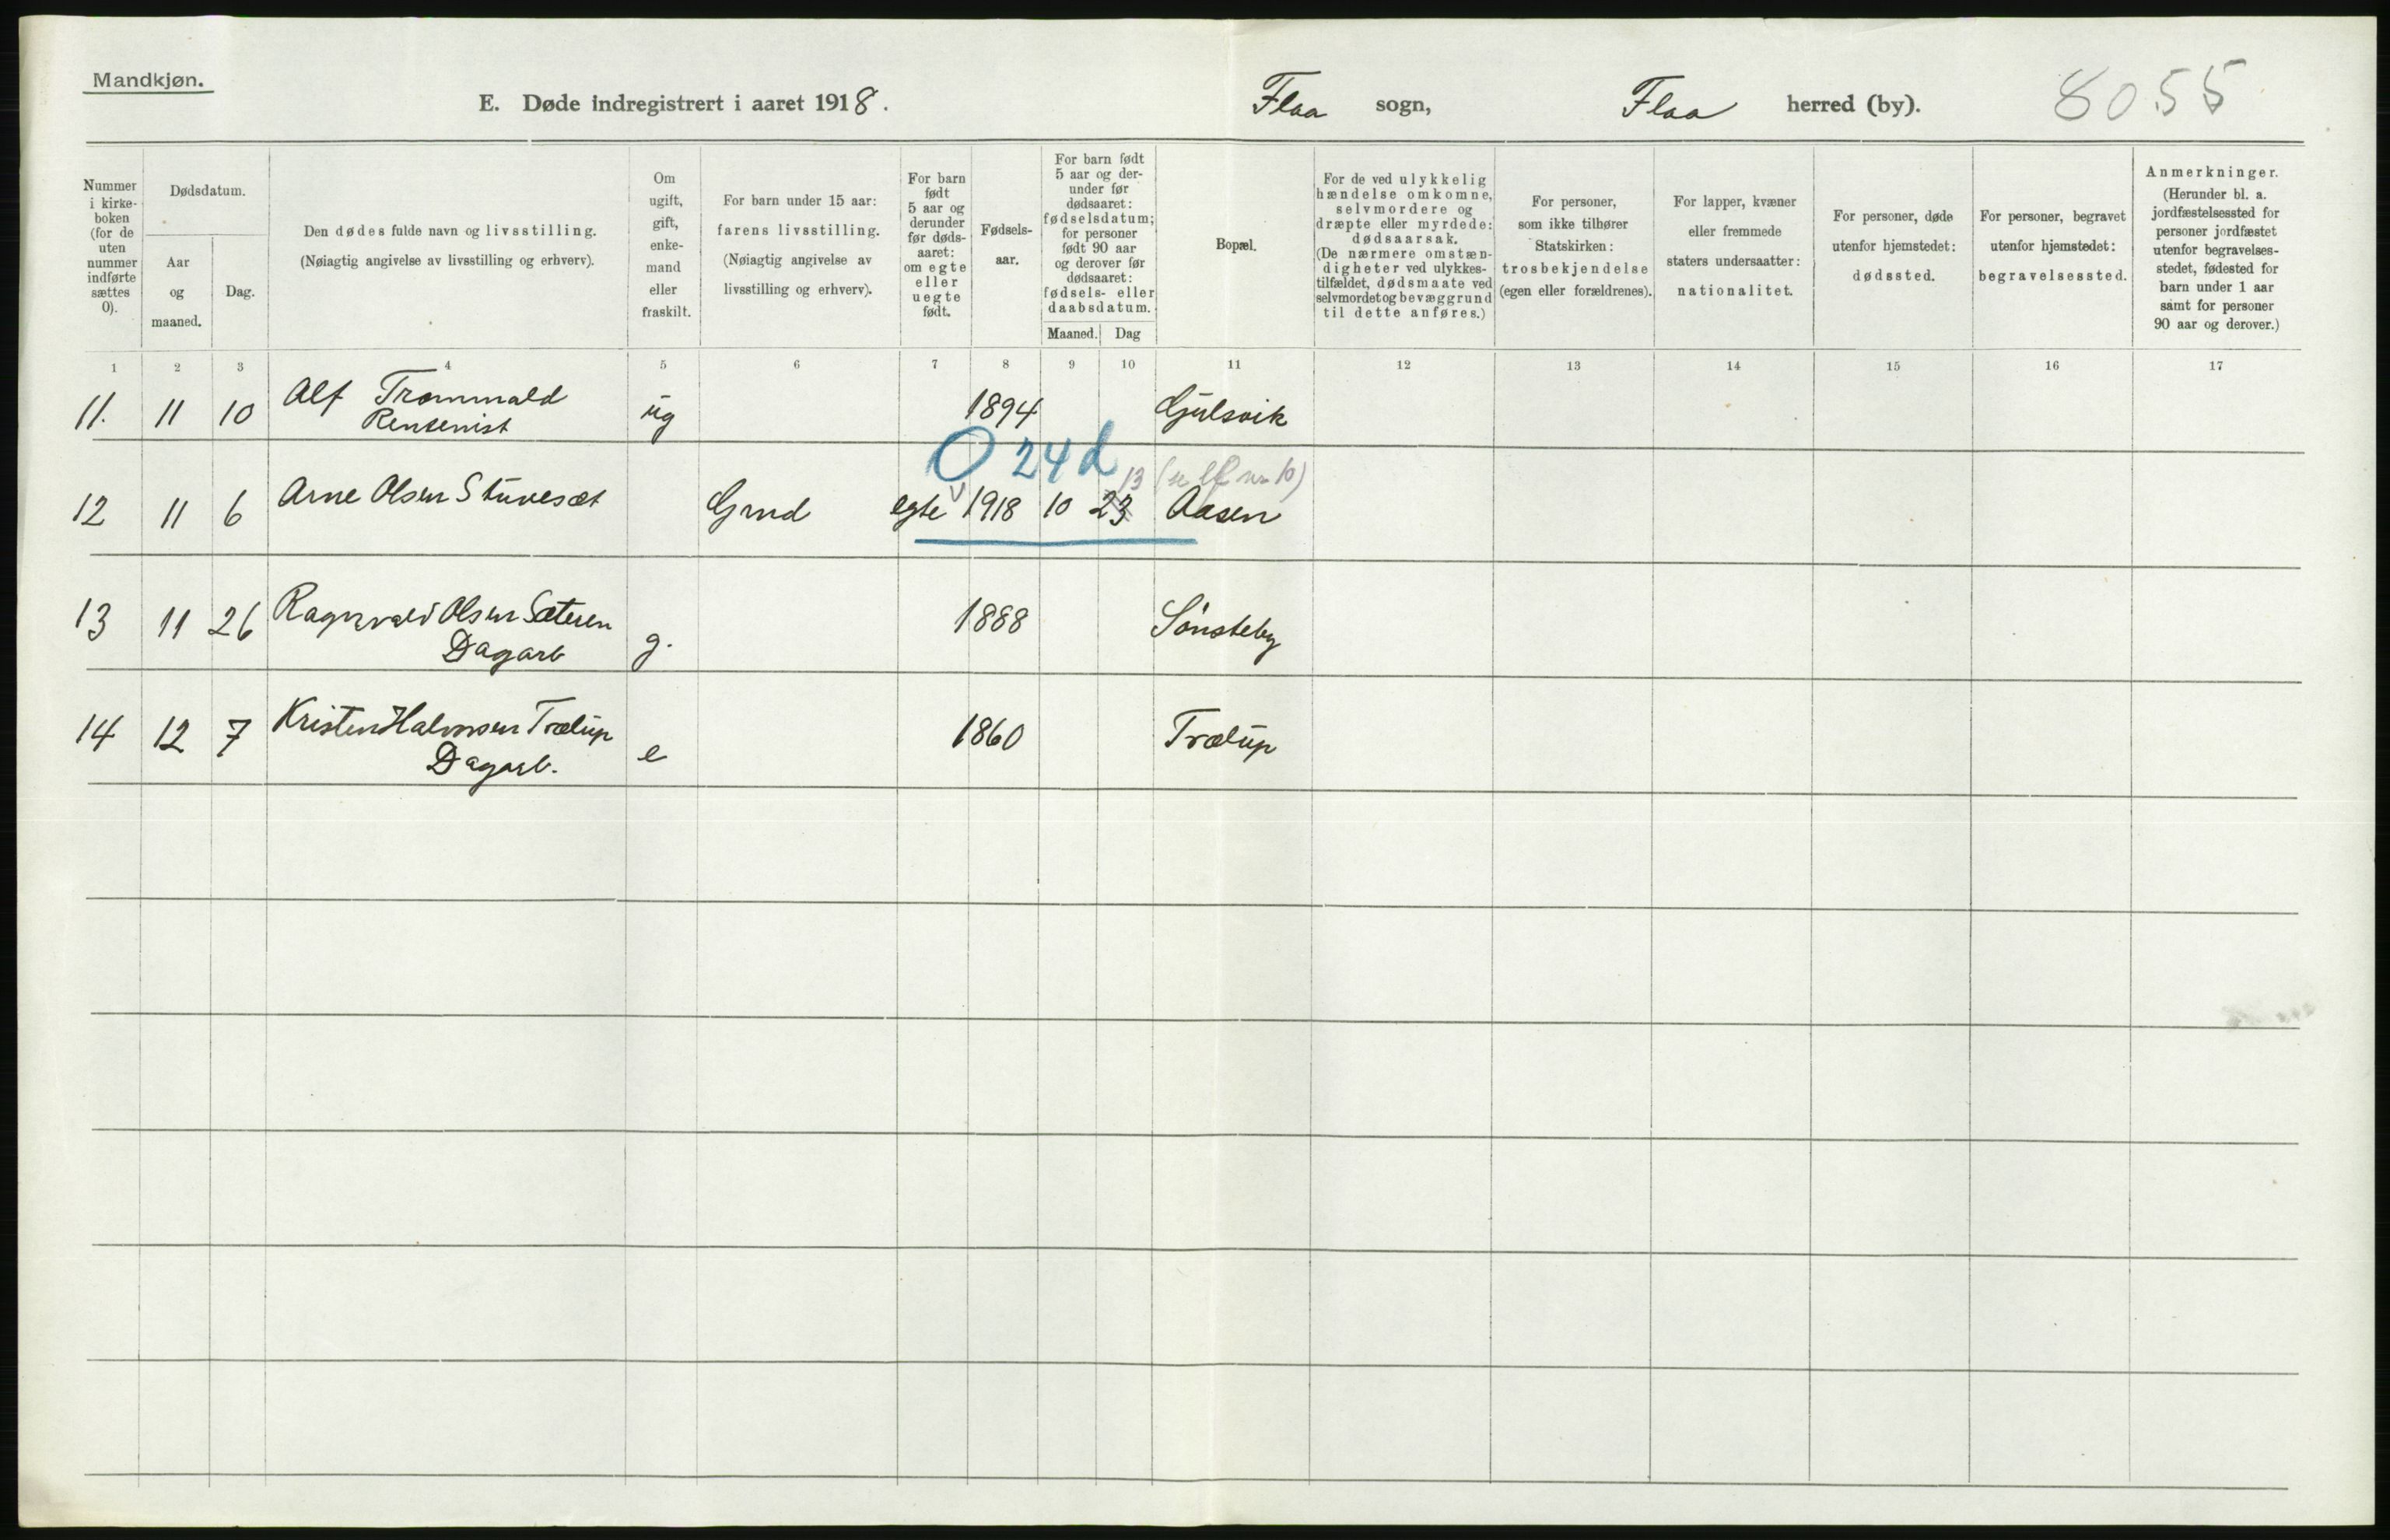 Mandkjøn.
E. Døde indregistrert i aaret 1918.
Flaa sogn,
Flaa herred (by).
8055
Nummer i kirke-boken (for de uten nummer indførte sættes 0).
Dødsdatum.
Aar og maaned.
Dag.
Den dødes fulde navn og livsstilling.
(Nøiagtig angivelse av livsstilling og erhverv).
Om ugift, gift, enke-mand eller fraskilt.
For barn under 15 aar: farens livsstilling.
(Nøiagtig angivelse av livsstilling og erhverv).
For barn født 5 aar og derunder før døds-aaret: om egte eller uegte født.
Fødsels-aar.
For barn født 5 aar og der-under før dødsaaret: fødselsdatum; for personer født 90 aar og derover før dødsaaret: fødsels- eller daabsdatum.
Maaned.
Dag
Bopæl.
For de ved ulykkelig hændelse omkomne, selvmordere og dræpte eller myrdede: dødsaarsak.
(De nærmere omstæn-digheter ved ulykkes-tilfældet, dødsmaate ved selvmordet og bevæggrund til dette anføres.)
For personer, som ikke tilhører Statskirken: trosbekjendelse (egen eller forældrenes).
For lapper, kvæner eller fremmede staters undersaatter: nationalitet.
For personer, døde utenfor hjemstedet: dødssted.
For personer, begravet utenfor hjemstedet: begravelsessted.
Anmerkninger.
(Herunder bl. a. jordfæstelsessted for personer jordfæstet utenfor begravelses-stedet, fødested for barn under 1 aar samt for personer 90 aar og derover.)
1 2 3 4 5 6 7 8 9 10 11 12 13 14 15 16 17
11. 11 10 Alf Trommald ug 1894 Gulsvik
Rentenist
0 24 d
13
12 11 6 Arne Olsen Stuvesæt Grmd egte 1918 10 23 Aasen
13 11 26 Ragnvald Olsen Sæteren g. 1888 Sønsteby
Dagarb
14 12 7 Kristen Halvorsen Trælup e 1860 Trælup
Dagarb.